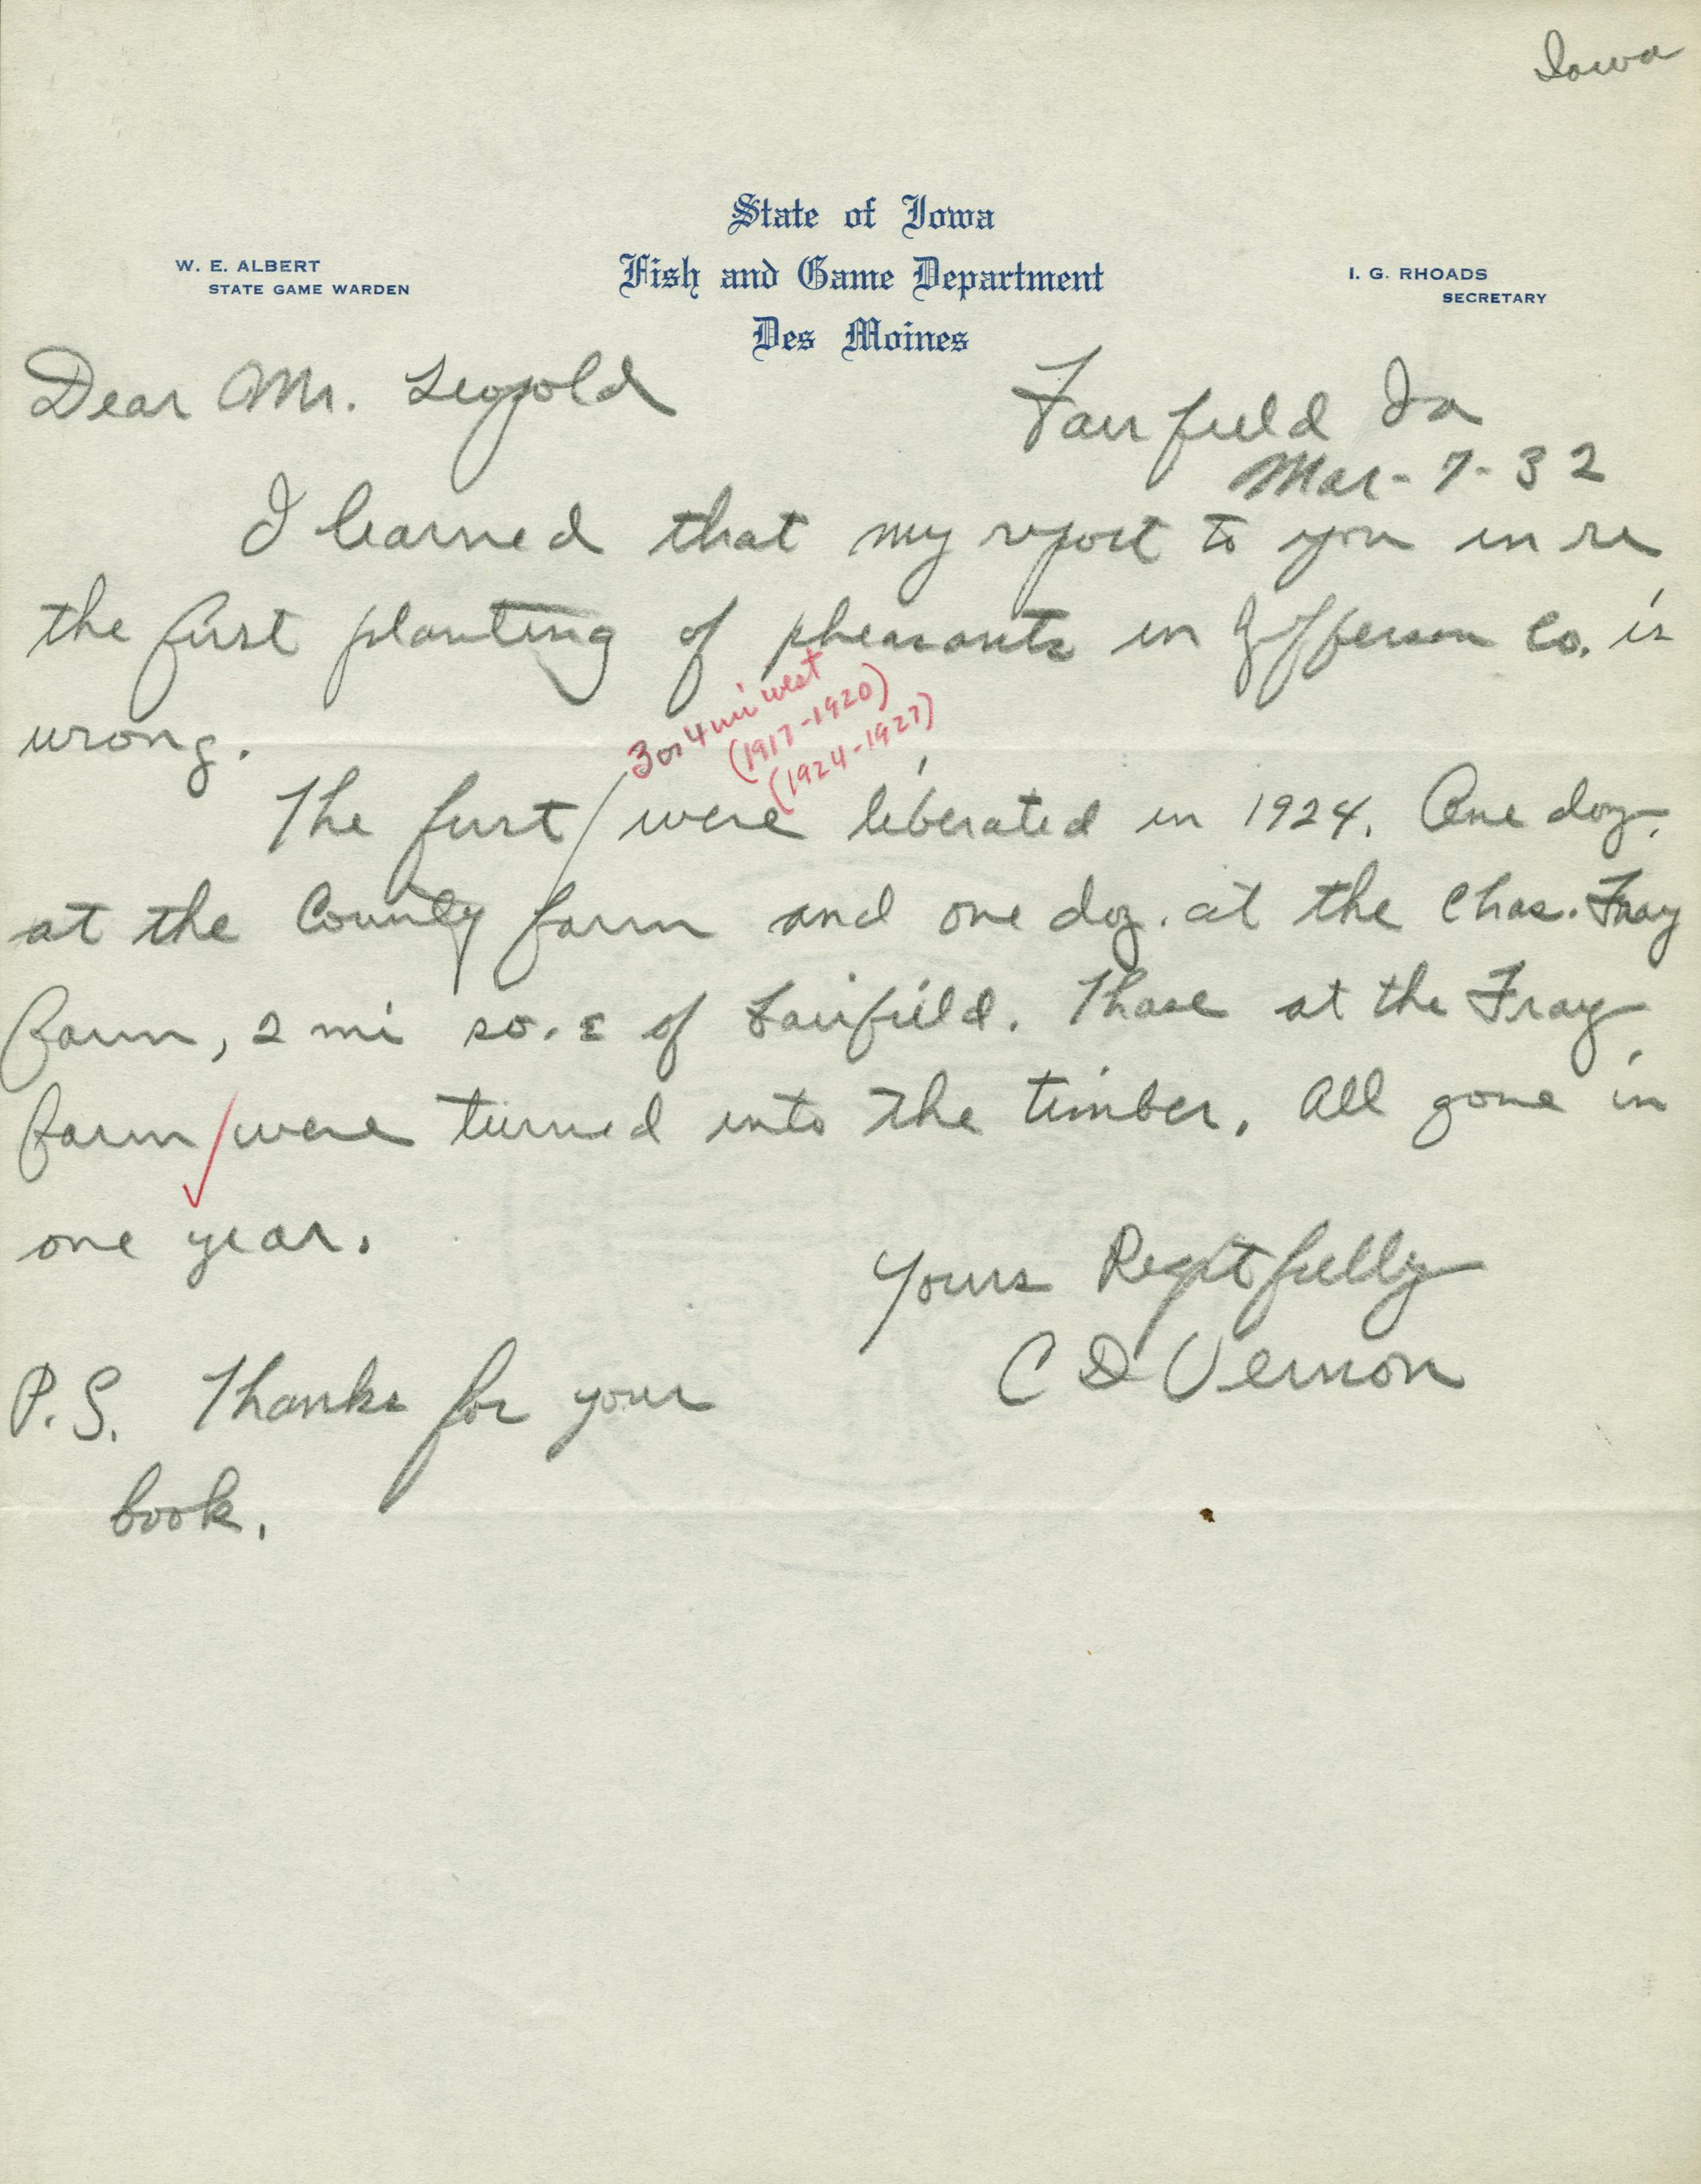 Iowa
State of Iowa
Fish and Game Department
Des Moines
W. E. ALBERT
STATE GAME WARDEN
I. G. RHOADS
SECRETARY
Dear Mr. Leopold
Fairfield Ia
Mar-7-32
I learned that my report to you in re
the first planting of pheasants in Jefferson Co. is
wrong.
3 or 4 mi west
(1917-1920)
(1924-1927)
The first were liberated in 1924. One doz.
at the County farm and one doz. at the Chas. Fray
farm, 2 mi so. E of Fairfield. Those at the Fray
farm were turned into the timber. All gone in
one year.
Yours Respt fully
C D Vernon
P.S. Thanks for your
book.